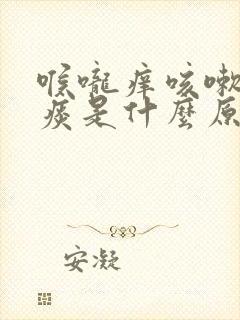 喉嚨痒咳嗽
痰是什麼原
安凝